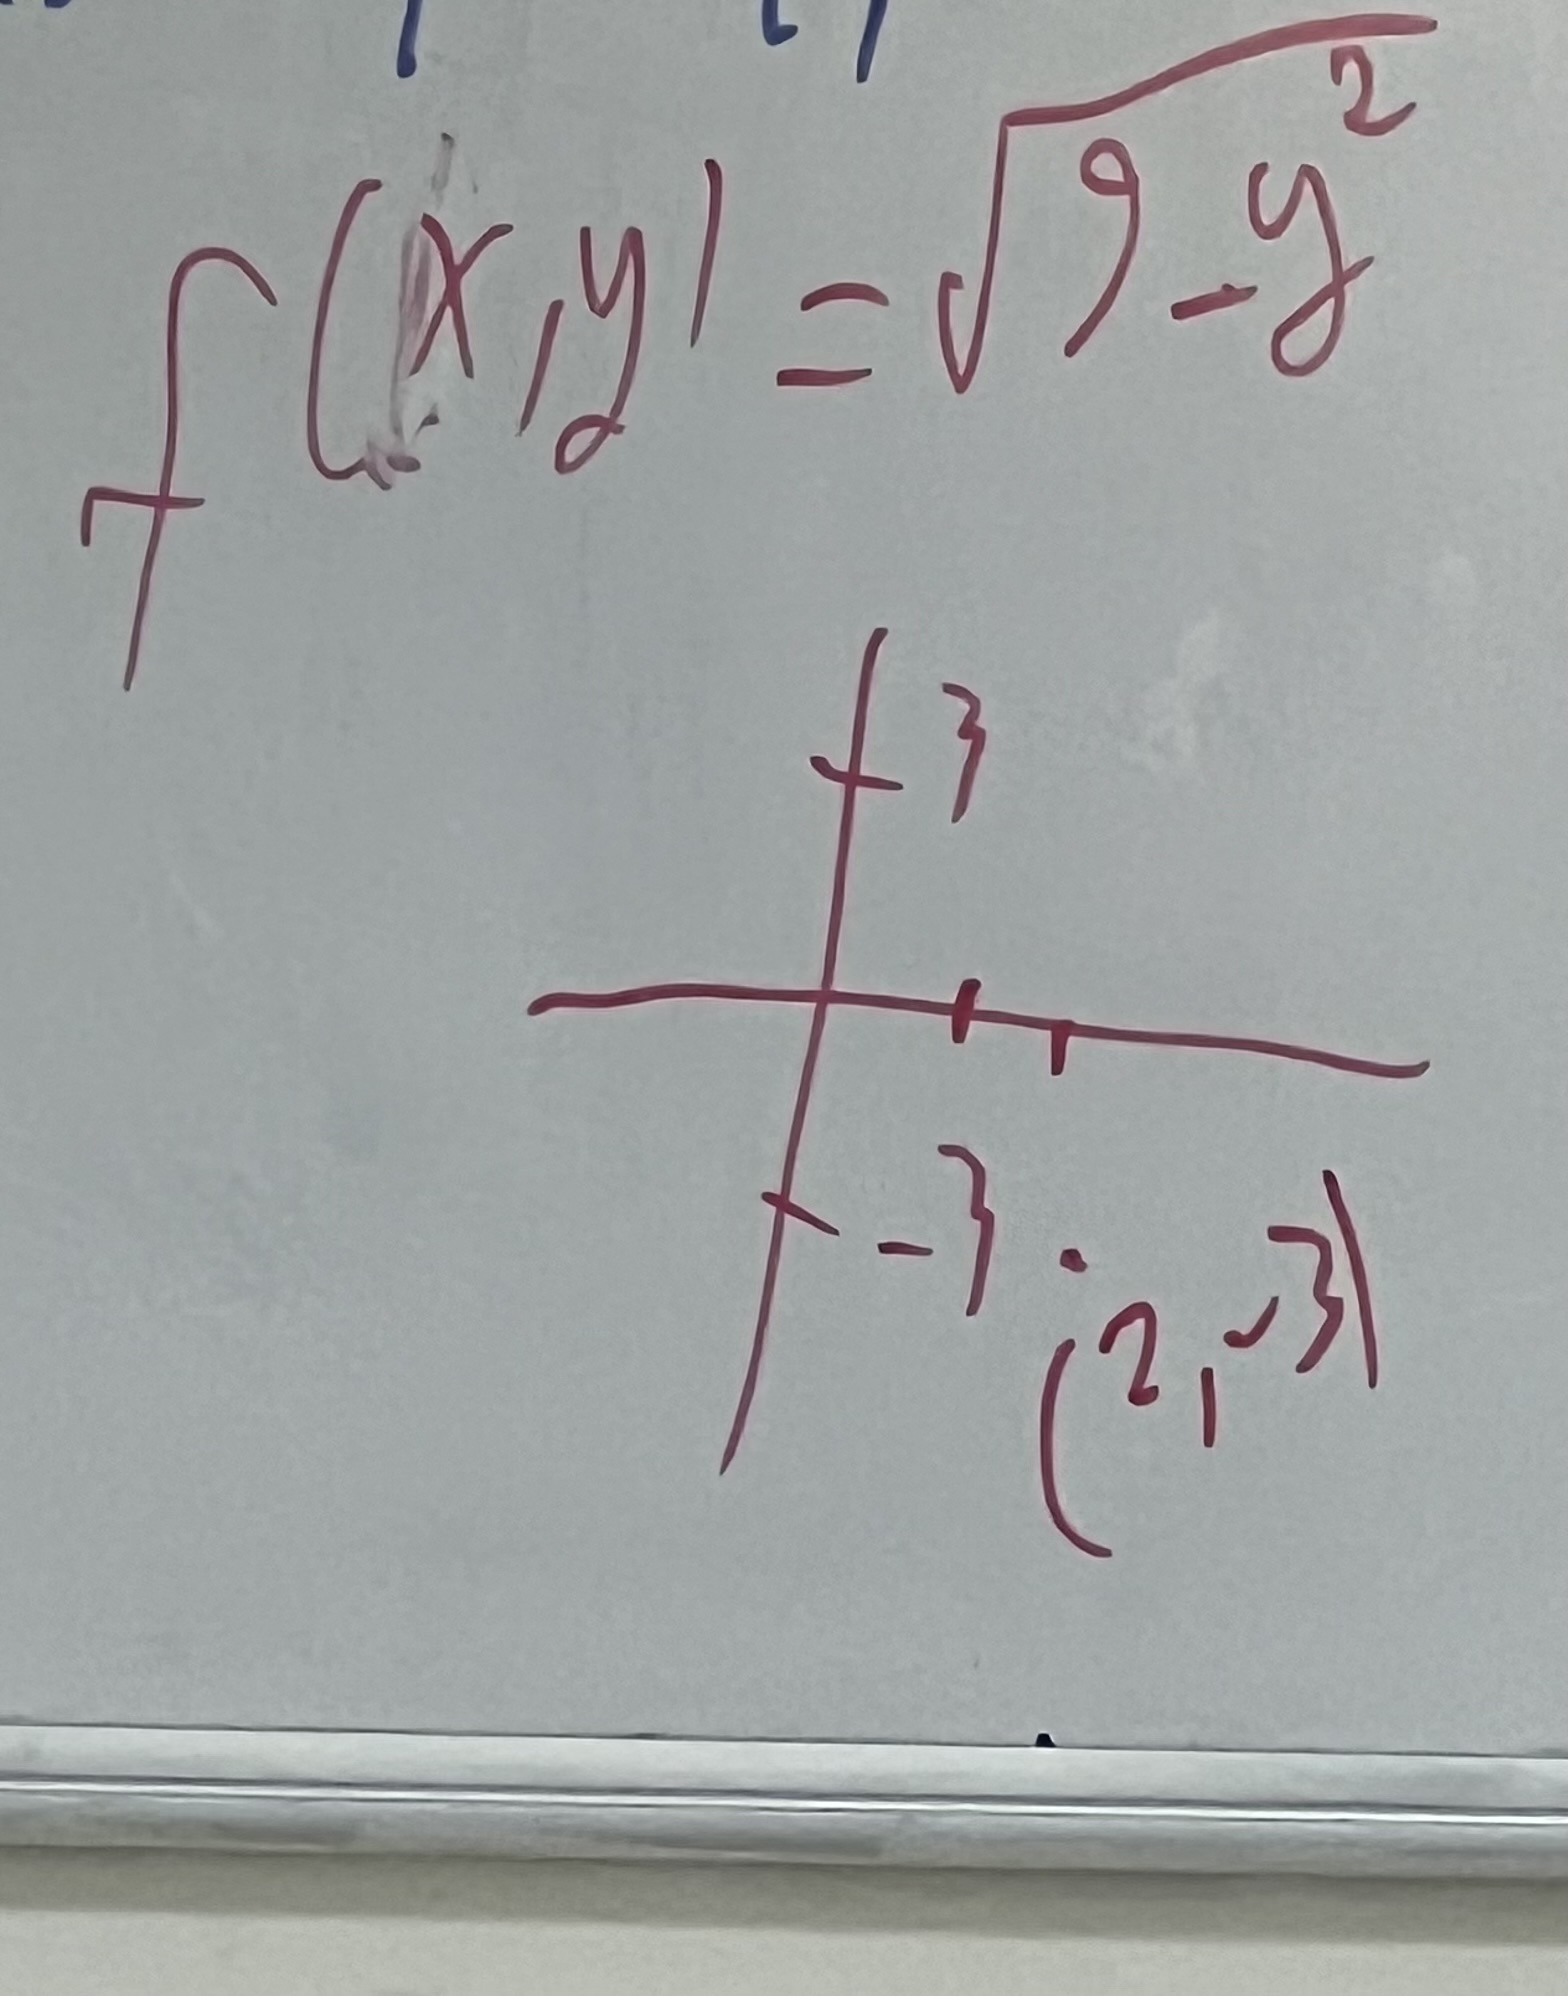 f(x,y) = √(9-y²)
3
-3
(2,-3)